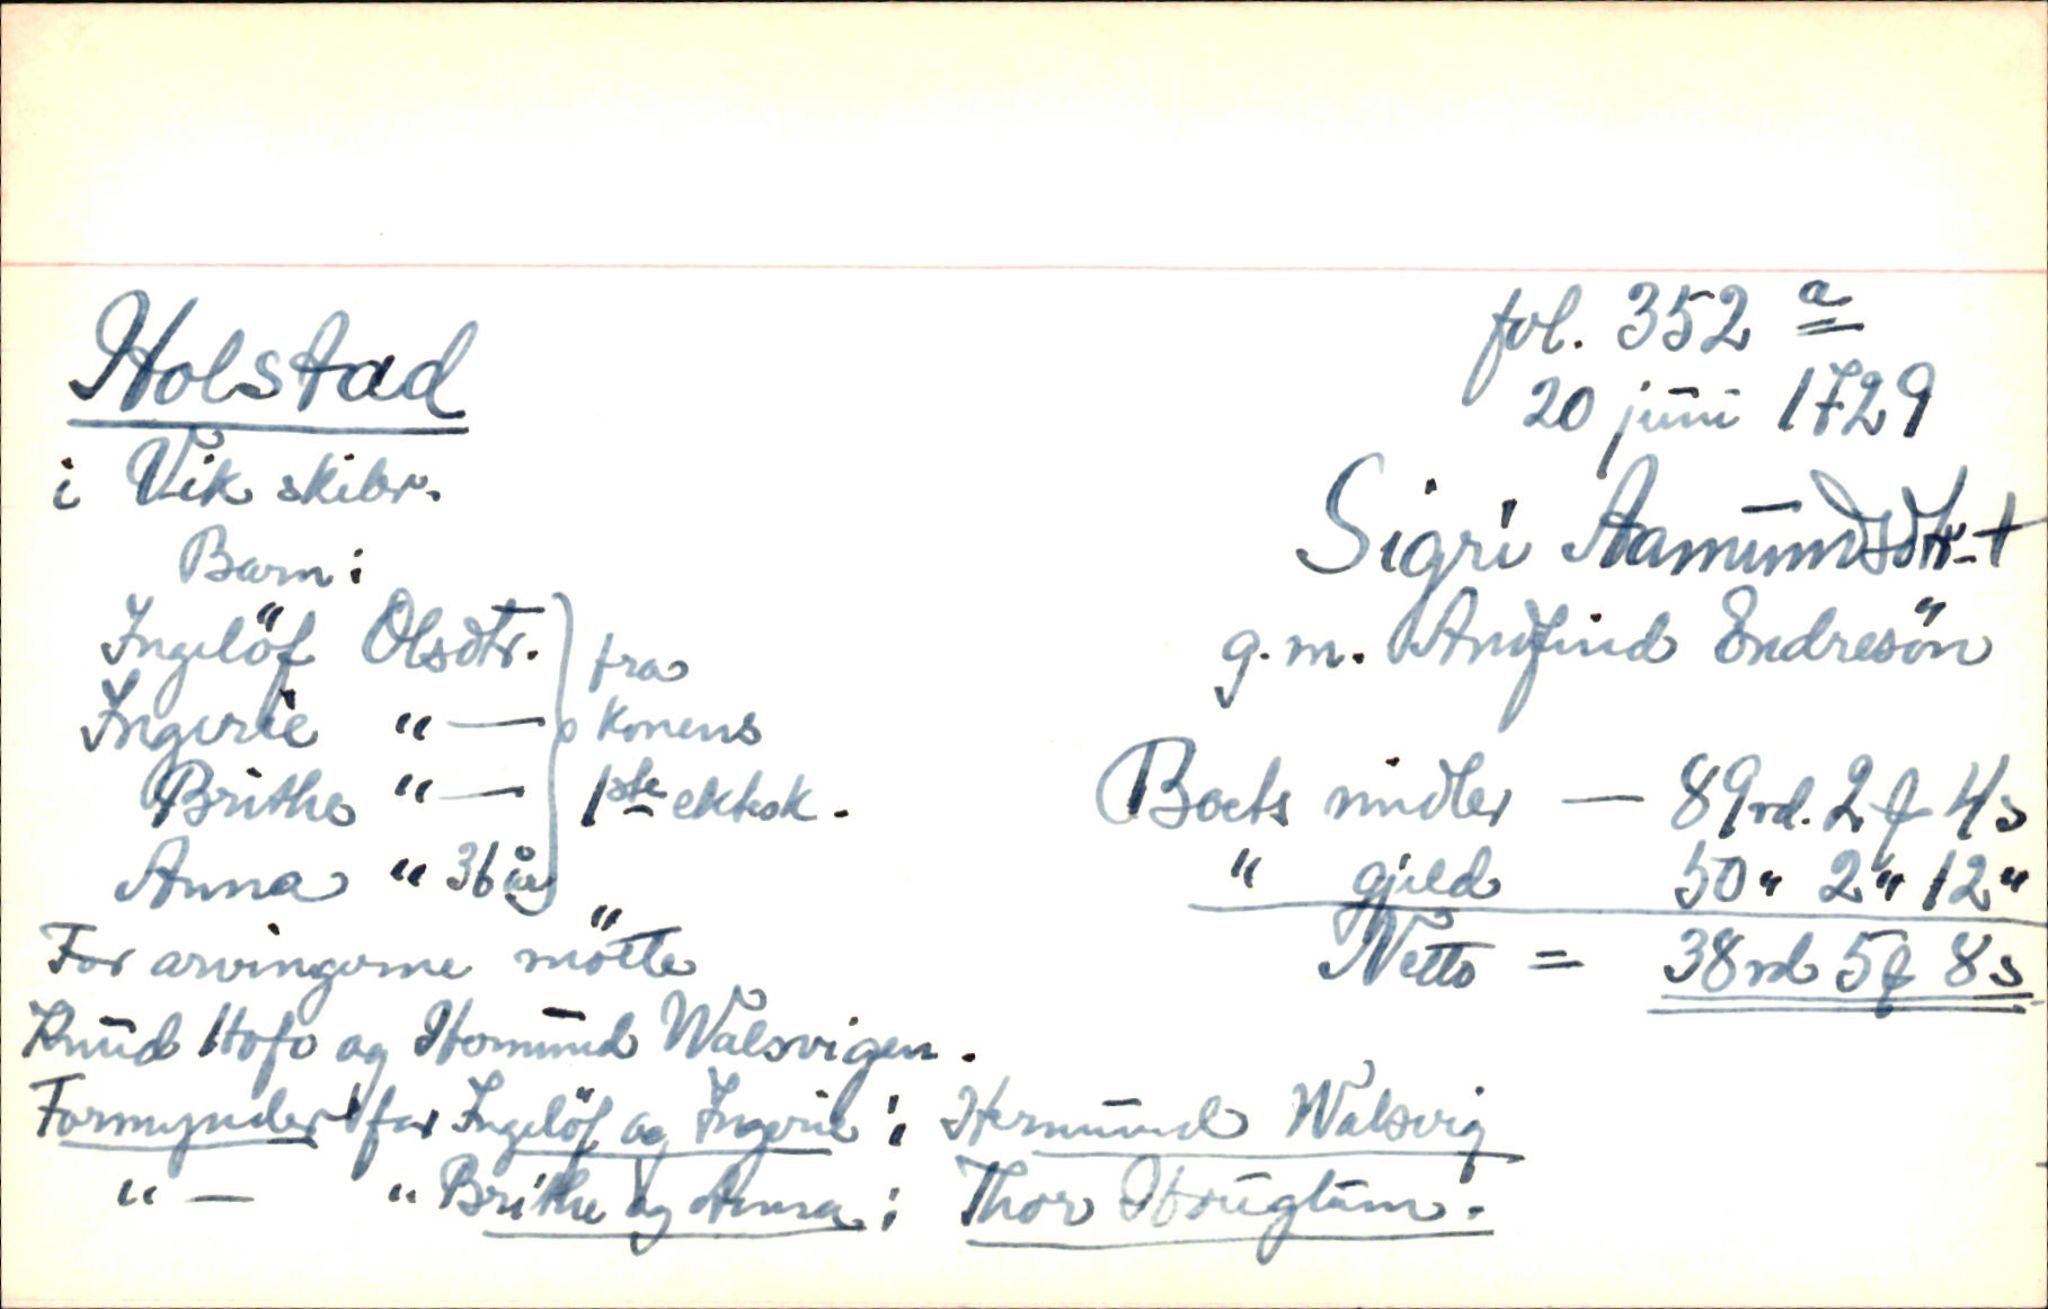 Holstad
i Vik skibr.
Barn:
Ingelöf Olsdtr. } fra
Ingerie "— konens
Brithe "— 1ste ektsk.
Anna " 36 år
For arvingerne mötte
Knud Hofo og Homund Walsvigen.
Formynder for Ingelöf og Ingerie: Hermund Walsvig
"— " Brithe og Anna: Thor
fol. 352 a
20 juni 1729
Sigri Aamundsdtr. †
g. m. Andfind Endresön
Boets midler — 89 rd. 2 ₰ 4 s
" gjeld 50 " 2 " 12 "
Netto = 38 rd 5 ₰ 8 s